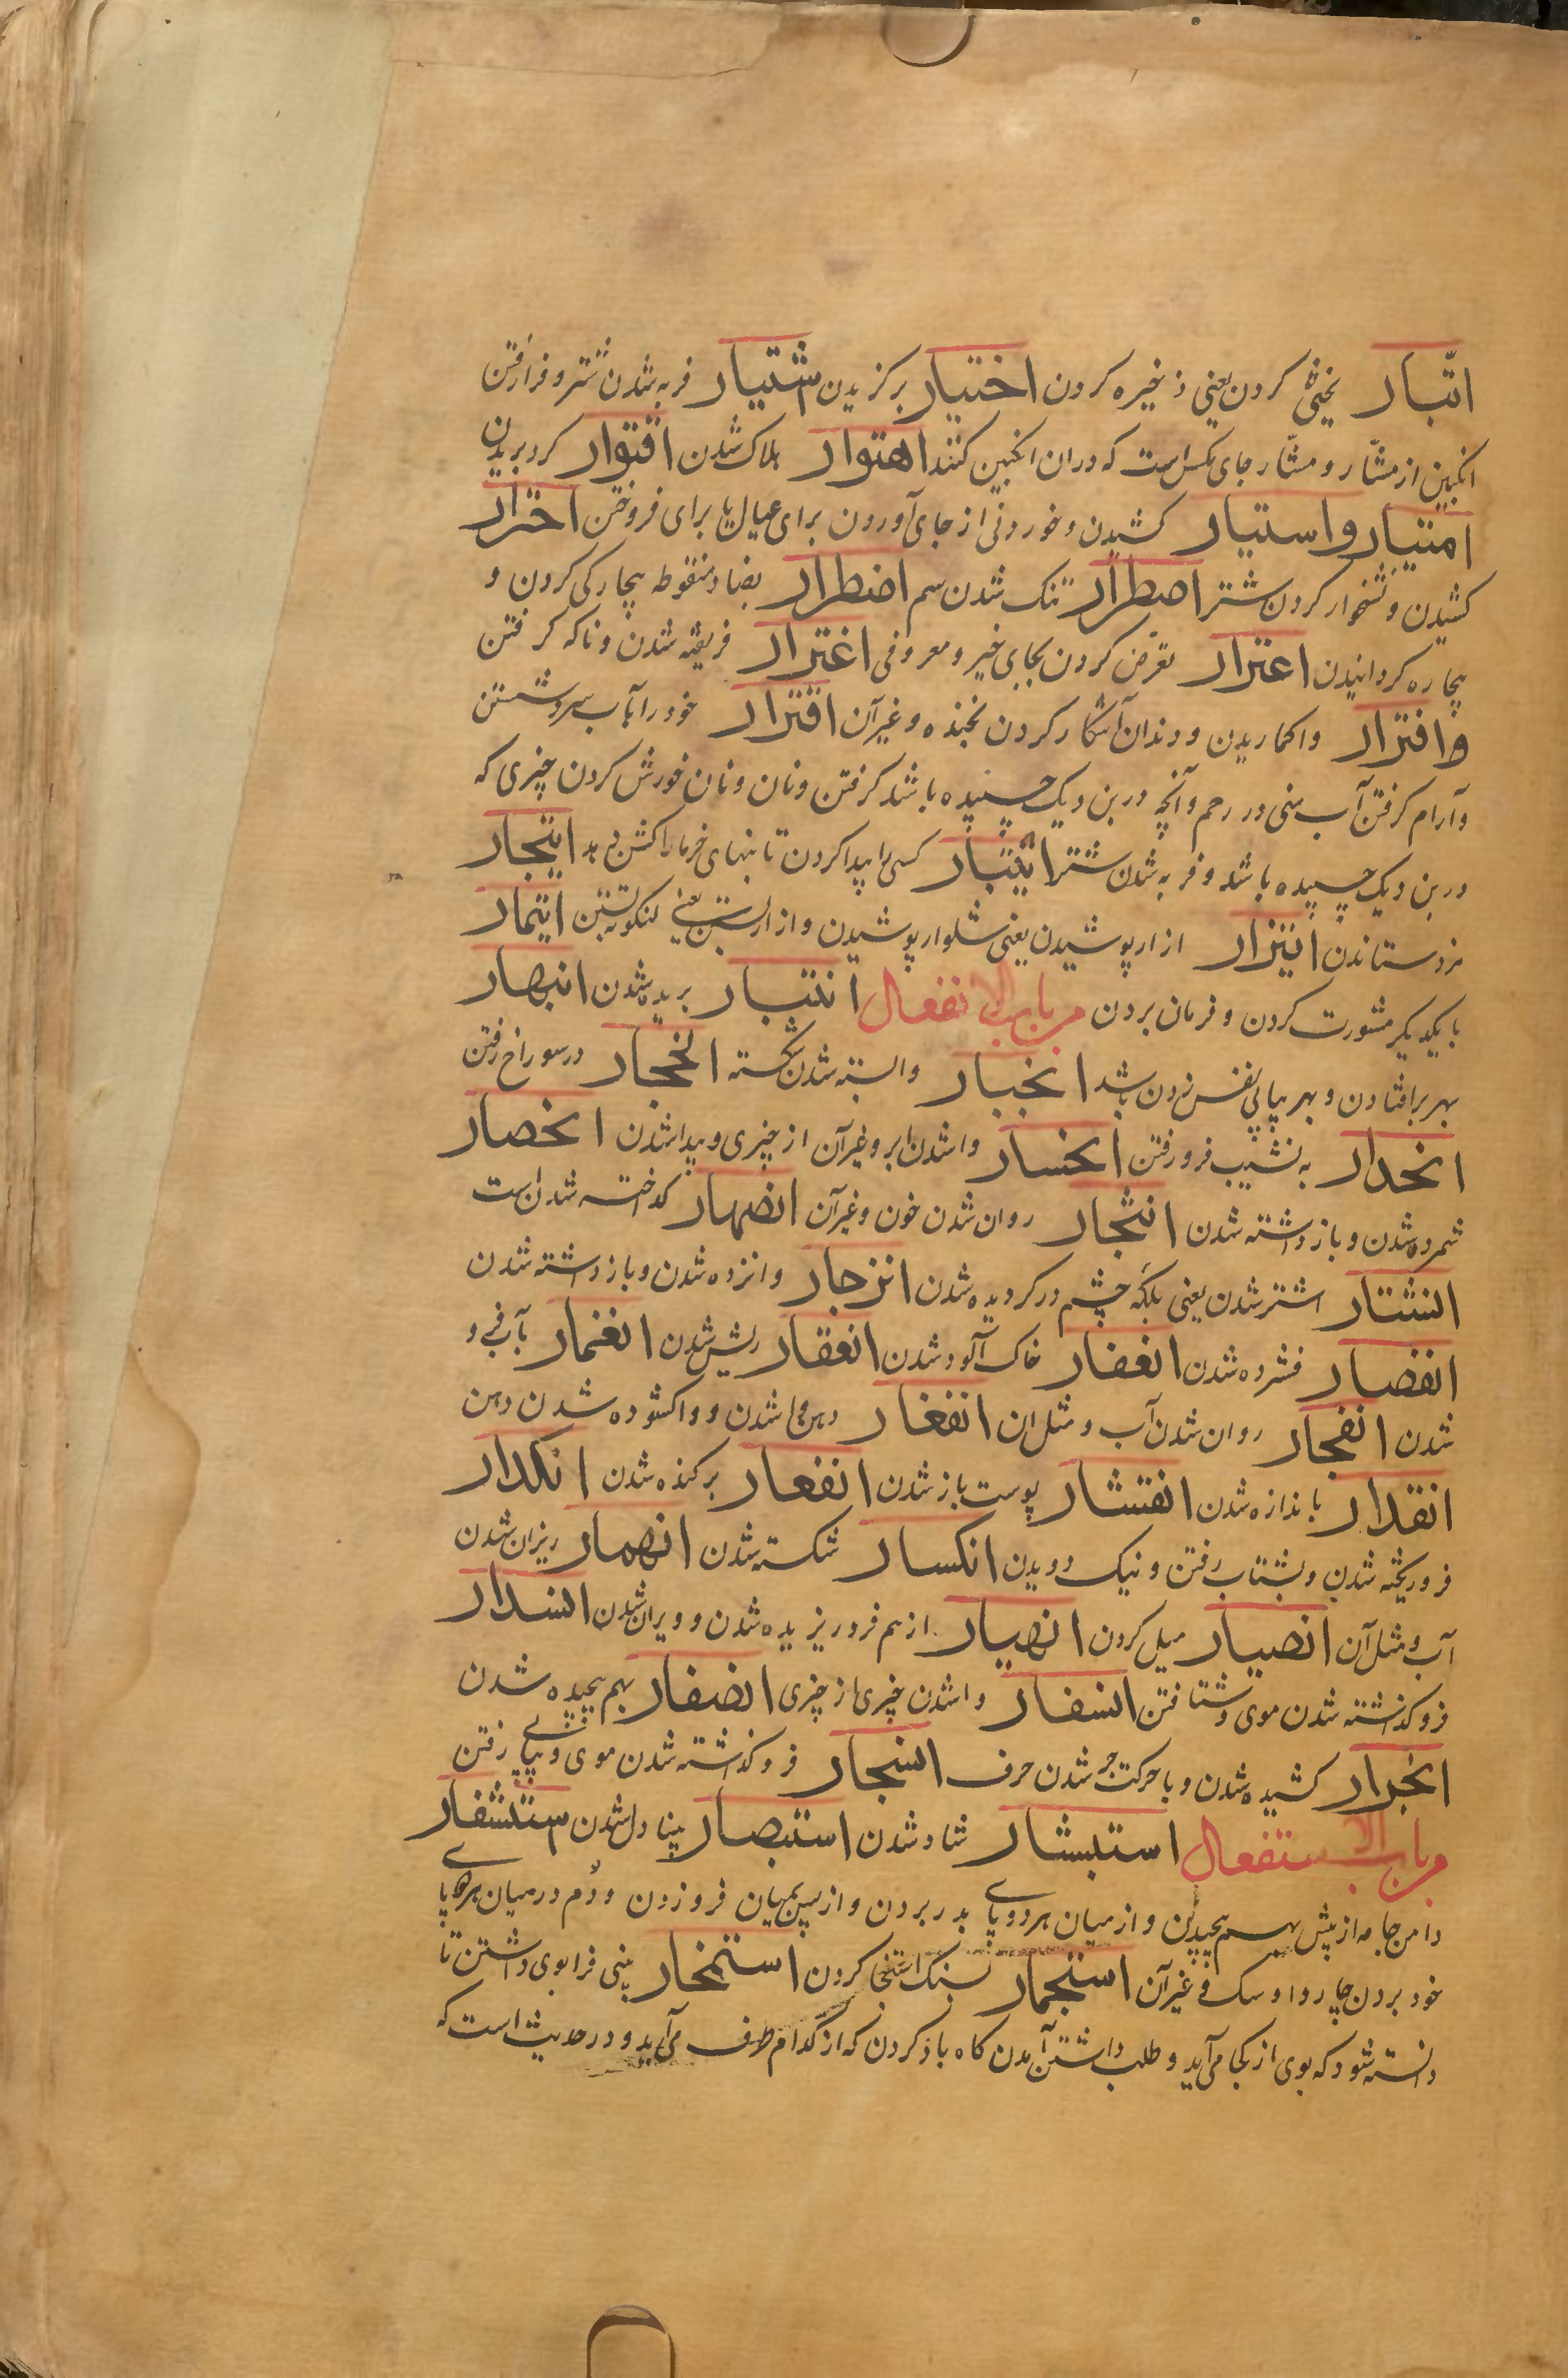 ابتیار یخنی کردن یعنی ذخیره کردن اختیار برکزیدن اشتیار فربه شدن شتر و فرا رفتن
انکبین از مشار و مشار جای مکس است که در ان انکبین کنند اهتوار هلاک شدن اقتوار کرد بریدن
امتیار و استیار کشیدن و خوردنی از جای آوردن برای عیال یا برای فروختن اجترار
کشیدن و نشخوار کردن شتر اصطرار تنک شدن سم اضطرار بضاد منقوطه بیچارکی کردن و
بیچاره کردانیدن اعترار تعرض کردن بجای خیر و معروفی اغترار فریفته شدن و ناکه کرفتن
و افترار و اکماریدن و دندان آشکار کردن بخنده و غیر آن اقترار خود را بآب سرد شستن
و آرام کرفتن آب منی در رحم و آنچه در بن دیک چسپیده باشد کرفتن و نان و نان خورش کردن چیزی که
در بن دیک چسپیده باشد و فربه شدن شتر ایتبار کسی را پیدا کردن تا بنهای خرما را کشن دهد ایتجار
مزد ستاندن ایتزار ازار پوشیدن یعنی شلوار پوشیدن و ازار بستن یعنی لنکوته بستن ایتمار
با یکدیکر مشورت کردن و فرمان بردن من باب الانفعال انتبار بریده شدن انبهار
بهر بر افتادن و بهر پیاپی نفس زدن باشد انجبار وابسته شدن شکسته انجحار در سوراخ رفتن
انحدار به نشیب فرو رفتن انحسار وا شدن ابر و غیر آن از چیزی و پیدا شدن انحصار
شمرده شدن و باز داشته شدن انثجار روان شدن خون و غیر آن انصهار کداخته شدن است
انشتار اشتر شدن یعنی پلکه چشم در کردیده شدن انزجار وا نزده شدن و باز داشته شدن
انعصار فشرده شدن انعفار خاک آلود شدن انعقار ریش شدن انغمار بآب فرو
شدن انفجار روان شدن آب و مثل ان انفغار دهن وا شدن و واکشوده شدن دهن
انقدار باندازه شدن انقشار پوست باز شدن انقعار برکنده شدن انکدار
فرو ریخته شدن و بشتاب رفتن و نیک دویدن انکسار شکسته شدن انهمار ریزان شدن
آب و مثل آن انصیار میل کردن انهیار از هم فرو ریزیده شدن و ویران شدن انسدار
فرو کذاشته شدن موی و شتافتن انسفار وا شدن چیزی از چیزی انضفار بهم پیچیده شدن
انجرار کشیده شدن و با حرکت جر شدن حرف انسجار فرو کذاشته شدن موی و پیاپی رفتن
من باب الاستفعال استبشار شاد شدن استبصار بینا دل شدن استثفار
دامن جامه از پیش بهم پیچیدن و از میان هر دو پای بدر بردن و از پس بمیان فرو زدن و دم در میان هر دو پا
خود بردن چاروا و سک و غیر آن استجمار بسنک استنجا کردن استمخار بینی فرا بوی داشتن تا
دانسته شود که بوی از کجا می آید و طلب داشتن آمدن کاه باد کردن که از کدام طرف می آید و در حدیث است که